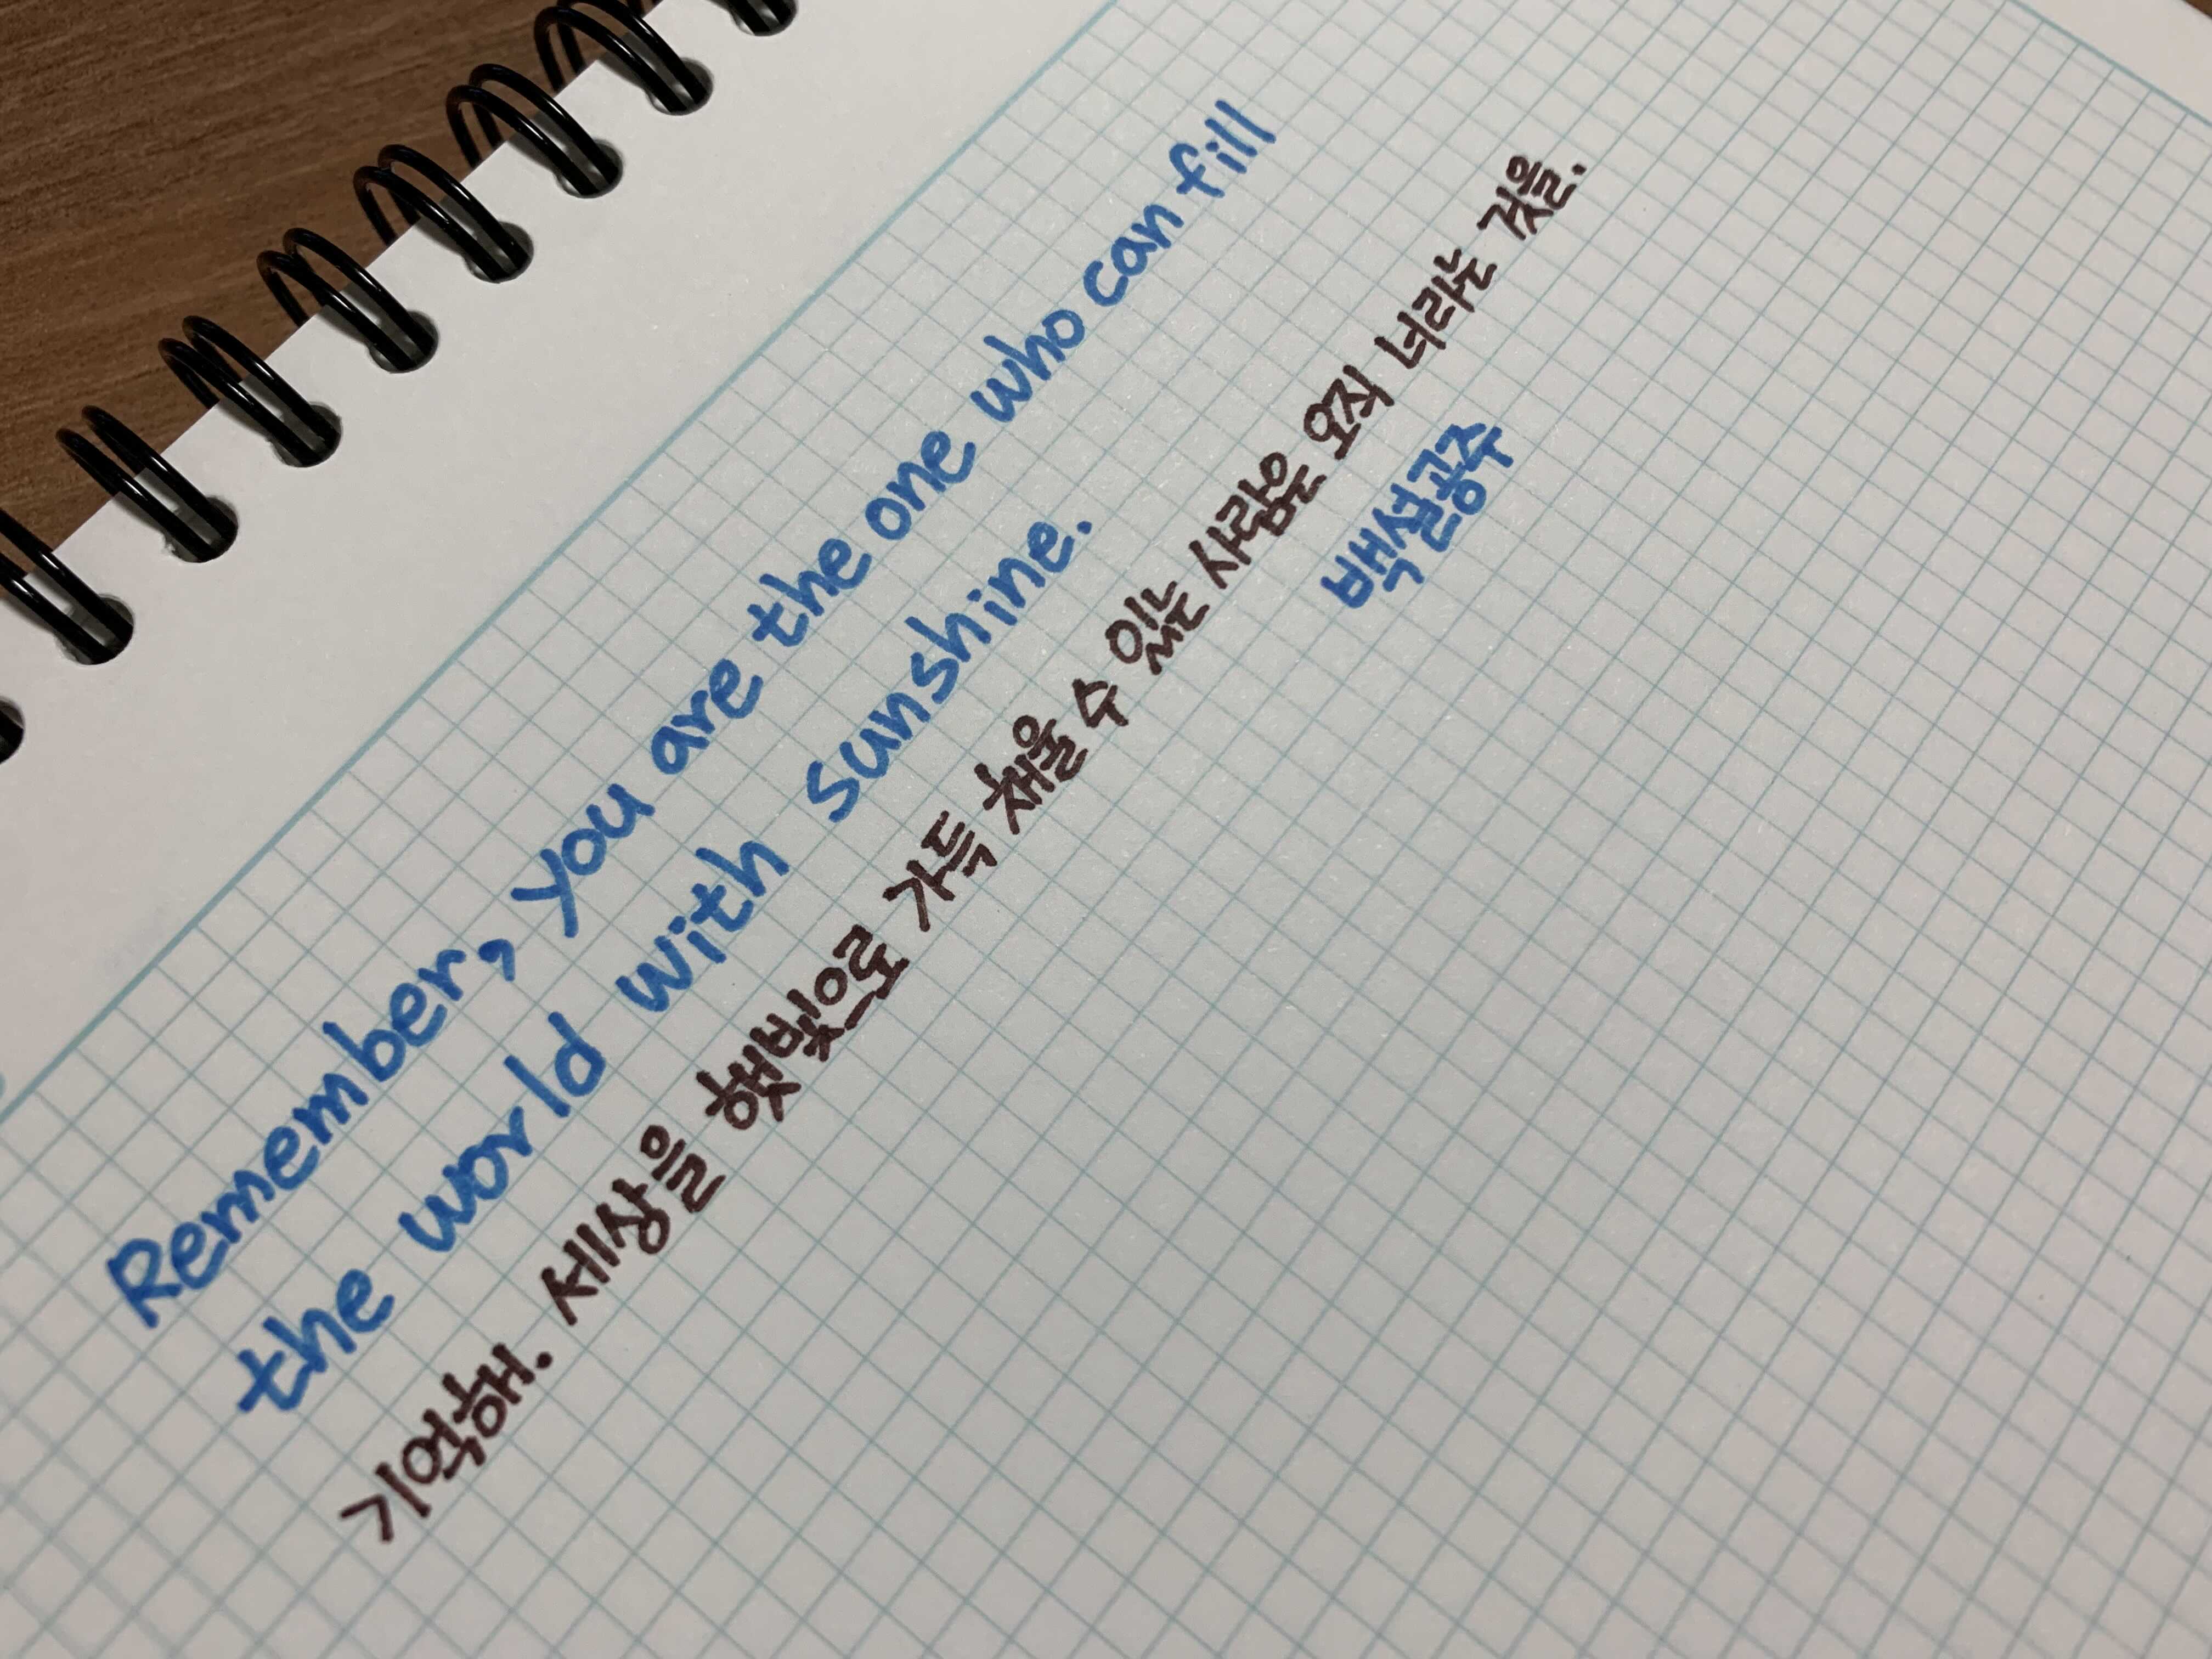 Remember, you are the one who can fill
the world with sunshine.
기억해. 세상을 햇빛으로 가득 채울 수 있는 사람은 오직 너라는 것을.
백설공주